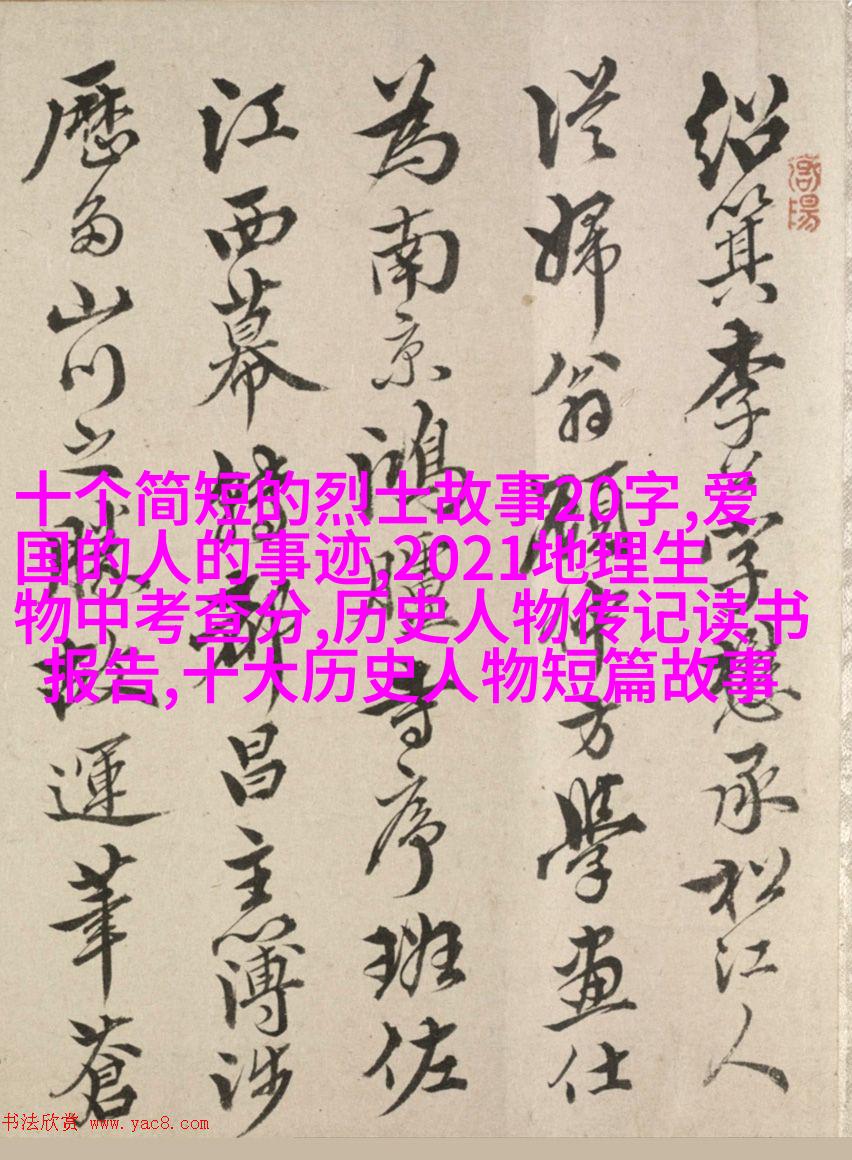 紹箕李字懋承松江人
從婦翁顧師方學畫仕
為南京鴻臚寺序班佐
江西幕轉都昌主簿涉
歷多山川之勝故運筆蒼
十个简短的烈士故事20字,爱
国的人的事迹,2021地理生
物中考查分,历史人物传记读书
报告,十大历史人物短篇故事
书法欣赏 www.yac8.com